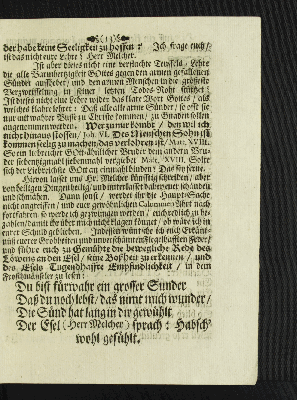 (13)
der habe keine Seeligkeit zu hoffen: Ich frage euch/
ist das nicht eure Lehre? Herr Melcher.
Ist aber dieses nicht eine verfluchte Teuffels-Lehre
die alle Barmhertzigkeit GOttes gegen den armen gefallenen
Sünder aufhebet/ und den armen Menschen in die gröste
Verzweiffelung in seiner letzten Todes-Noht stürtzet?
Ist dieses nicht eine Lehre wider das klare Wort GOttes/ als
welches klahr lehret: Daß alle arme Sünder/ so offt sie
nur mit wahrer Busse zu Christo kommen/ zu Gnaden sollen
angenommen werden. Wer zu mir kombt/ den wil ich
nicht hinaus stossen/ Joh. VI. Des Menschen Sohn ist
kommen seelig zu machen/ das verlohren ist/ Matt. XVIII.
So ein liebreicher Gott-ähnlicher Bruder dem andern Bruder
siebentzigmahl siebenmahl vergiebet Matt. XVIII, Solte
sich der Liebreichste GOtt an einmahl binden? Das sey ferne.
Hievon lasset uns Hr. Melcher künfftig schreiben/ aber
von heiligen Dingen heilig/ und unterlasset dabey euer schänden
und schmähen. Dann sonst/ werdet ihr die Haupt-Sache
nicht angreiffen/ und euer gewöhnliches Calumniren Ampt noch
fortführen/ so werde ich gezwungen werden/ euch redlich zu begaben/
damit ihr über mich nicht klagen könnet/ ob wäre ich in
eurer Schuld geblieben. Indessen wünsche ich euch Erkäntnis
eurer Grobheiten und unverschämten Flegelhafften Feder/
und führe euch zu Gemühte die bewegliche Rede des
Löwens an den Esel/ seine Boßheit zu erkennen/ und
des Esels Tugendhaffte Empfindlichkeit/ in dem
Froschmäuseler zu lesen:
Du bist fürwahr ein grosser Sünder
Daß du noch lebst/ das nimt mich wunder/
Die Sünd hat lang in dir gewühlt.
Der Esel (Herr Melcher) sprach: Habsch
wohl gefühlt.